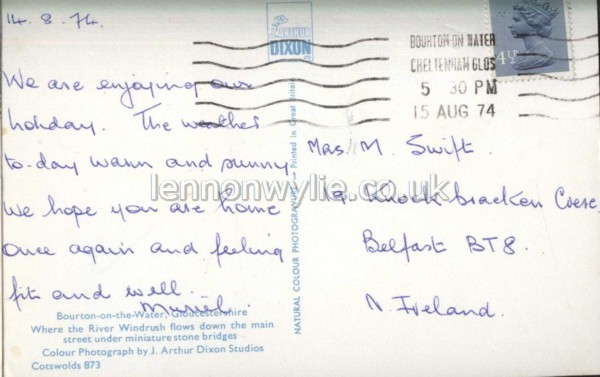 14.8.74.
We are enjoying our
holiday. The weather
to-day warm and sunny
we hope you are home
once again and feeling
fit and well.
Muriel.
Bourton-on-the-Water, Gloucestershire
Where the River Windrush flows down the main
street under miniature stone bridges
Colour Photograph by J. Arthur Dixon Studios
Cotswolds 873
J ARTHUR
DIXON
NATURAL COLOUR PHOTOGRAPH — Printed in Great Britain
BOURTON-ON-WATER
CHELTENHAM GLOS
5 30 PM
15 AUG 74
4½
Mrs M. Swift.
19 Knockbracken Cresc.
Belfast BT8.
N. Ireland.
lennonwylie.co.uk